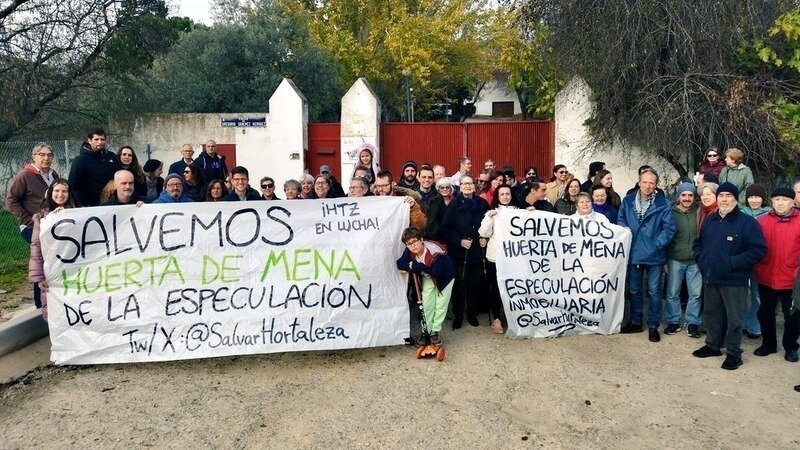 SALVEMOS
¡HTZ
EN LUCHA!
HUERTA DE MENA
DE LA ESPECULACIÓN
Tw/X:@SalvarHortaleza
SALVEMOS
HUERTA DE MENA
DE LA
ESPECULACIÓN
INMOBILIARIA
@SalvarHortaleza